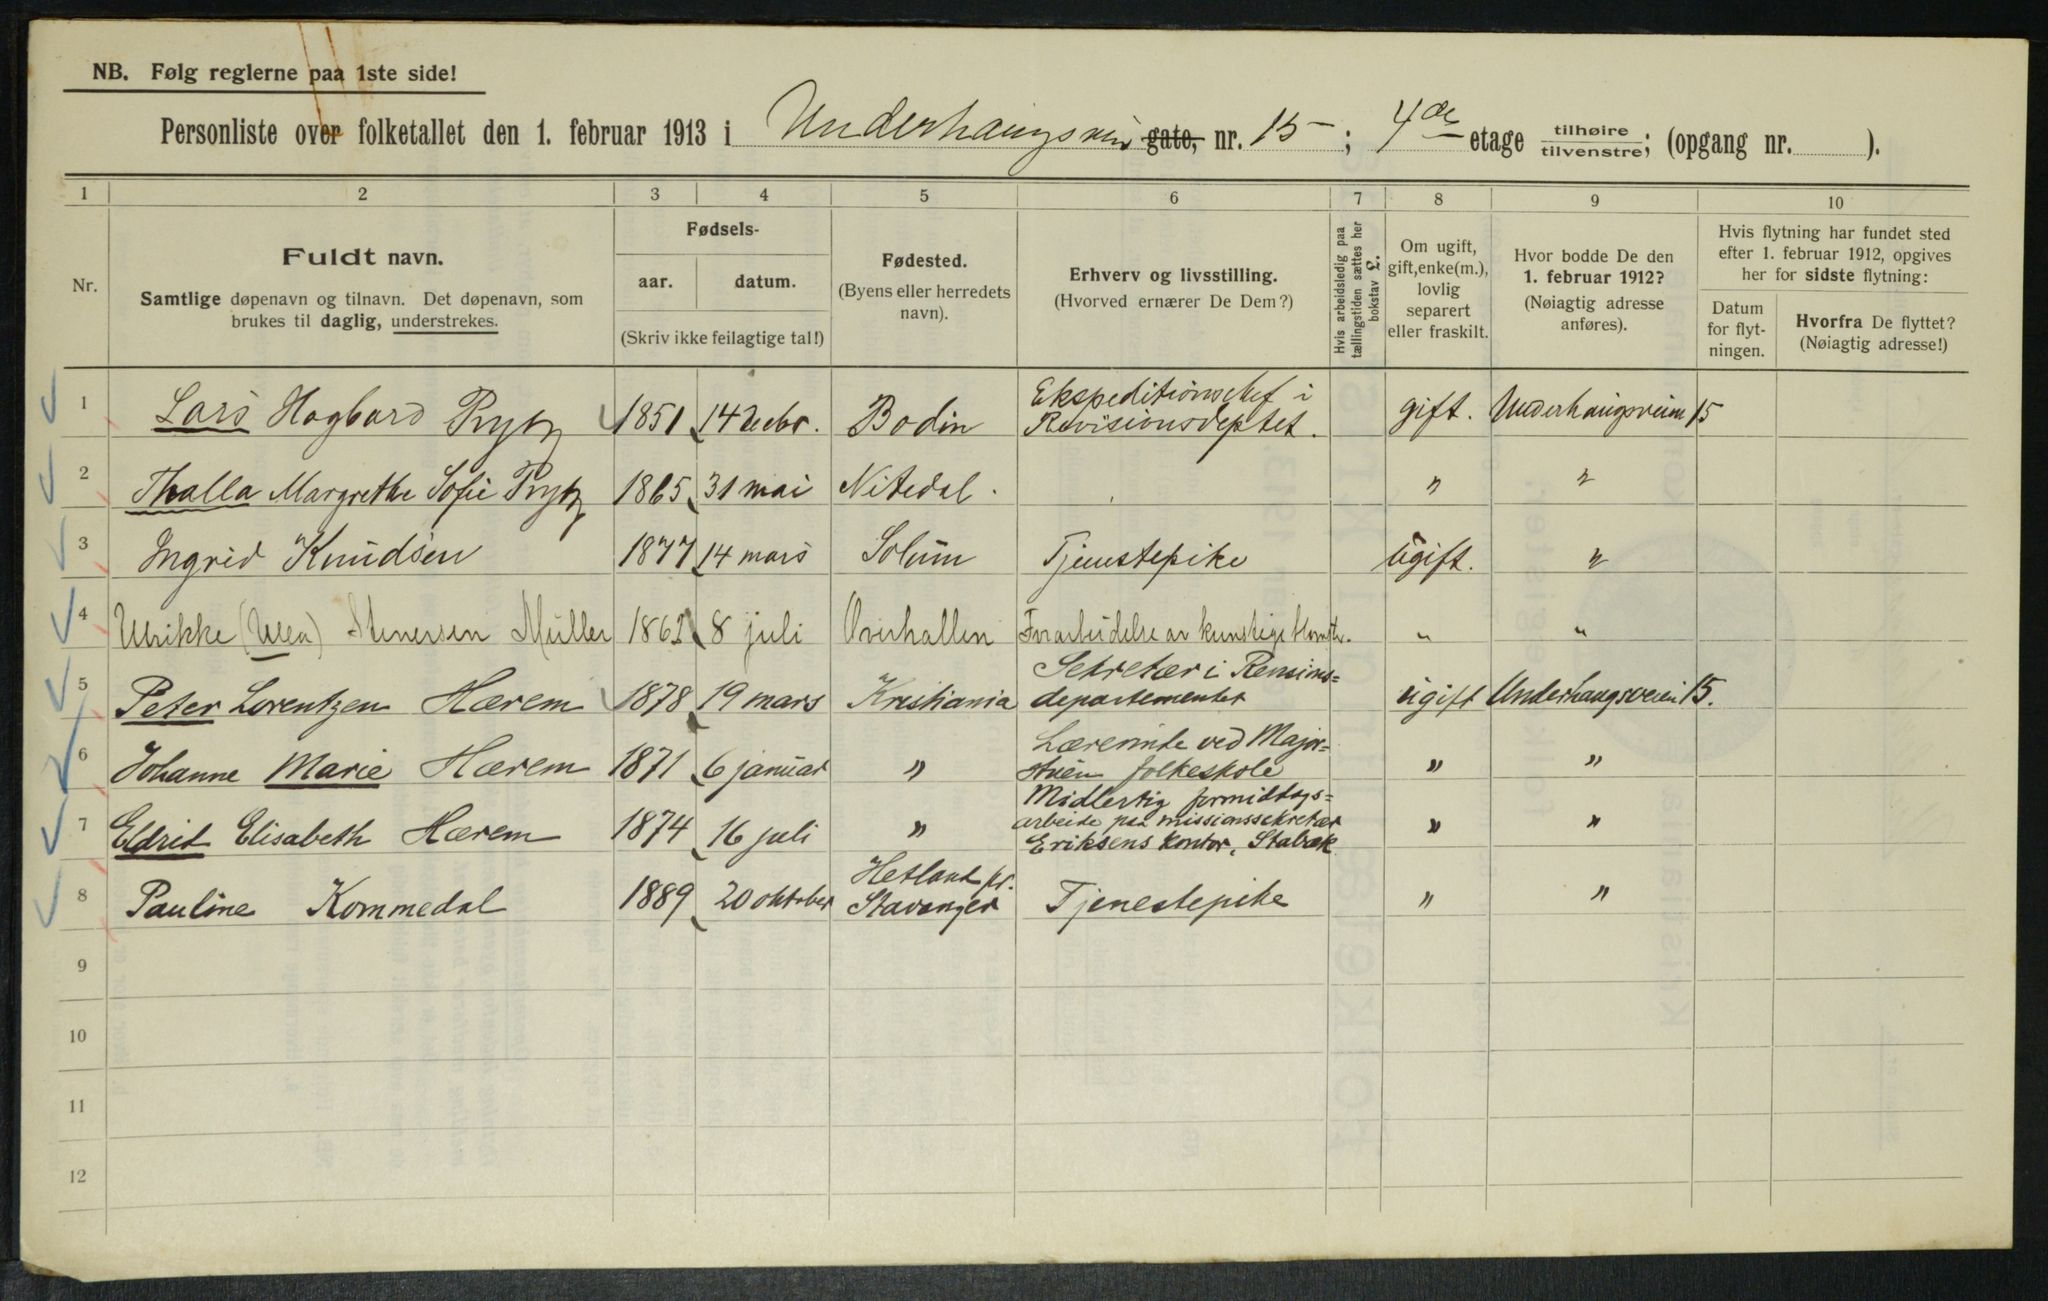 NB. Følg reglerne paa 1ste side!
Personliste over folketallet den 1. februar 1913 i Underhaugsveien gate, nr. 15 ; 4de etage tilhøire / tilvenstre; (opgang nr. ).
1 2 3 4 5 6 7 8 9 10
Nr.
Fuldt navn.
Samtlige døpenavn og tilnavn. Det døpenavn, som
brukes til daglig, understrekes.
Fødsels-
aar. datum.
(Skriv ikke feilagtige tal!)
Fødested.
(Byens eller herredets
navn).
Erhverv og livsstilling.
(Hvorved ernærer De Dem?)
Hvis arbeidsledig paa
tællingstiden sættes her
bokstav L.
Om ugift,
gift, enke(m.),
lovlig
separert
eller fraskilt.
Hvor bodde De den
1. februar 1912?
(Nøiagtig adresse
anføres).
Hvis flytning har fundet sted
efter 1. februar 1912, opgives
her for sidste flytning:
Datum
for flyt-
ningen.
Hvorfra De flyttet?
(Nøiagtig adresse!)
1 Lars Hagbard Prytz 1851 14 decbr. Bodin Ekspeditionschef i
Revisionsdeptet. gift. Underhaugsveien 15
2 Thalla Margrethe Sofie Prytz 1865 31 mai Nitedal. " "
3 Ingrid Knudsen 1877 14 mars Solum Tjenestepike ugift. "
4 Ulrikke (Ulla) Stenersen Müller 1862 8 juli Overhallen Forarbeidelse av kunstige blomstr. " "
5 Peter Lorentzen Hærem 1878 19 mars Kristiania Sekretær i Revisions=
departementet ugift Underhaugsveien 15.
6 Johanne Marie Hærem 1871 6 januar " Lærerinde ved Major=
stuen folkeskole " "
7 Eldrid Elisabeth Hærem 1874 16 juli " Midlertig formiddags=
arbeide paa missionssekretær
Eriksens kontor, Stabæk " "
8 Pauline Kommedal 1889 20 oktober Hetland pr.
Stavanger Tjenestepike " "
9
10
11
12